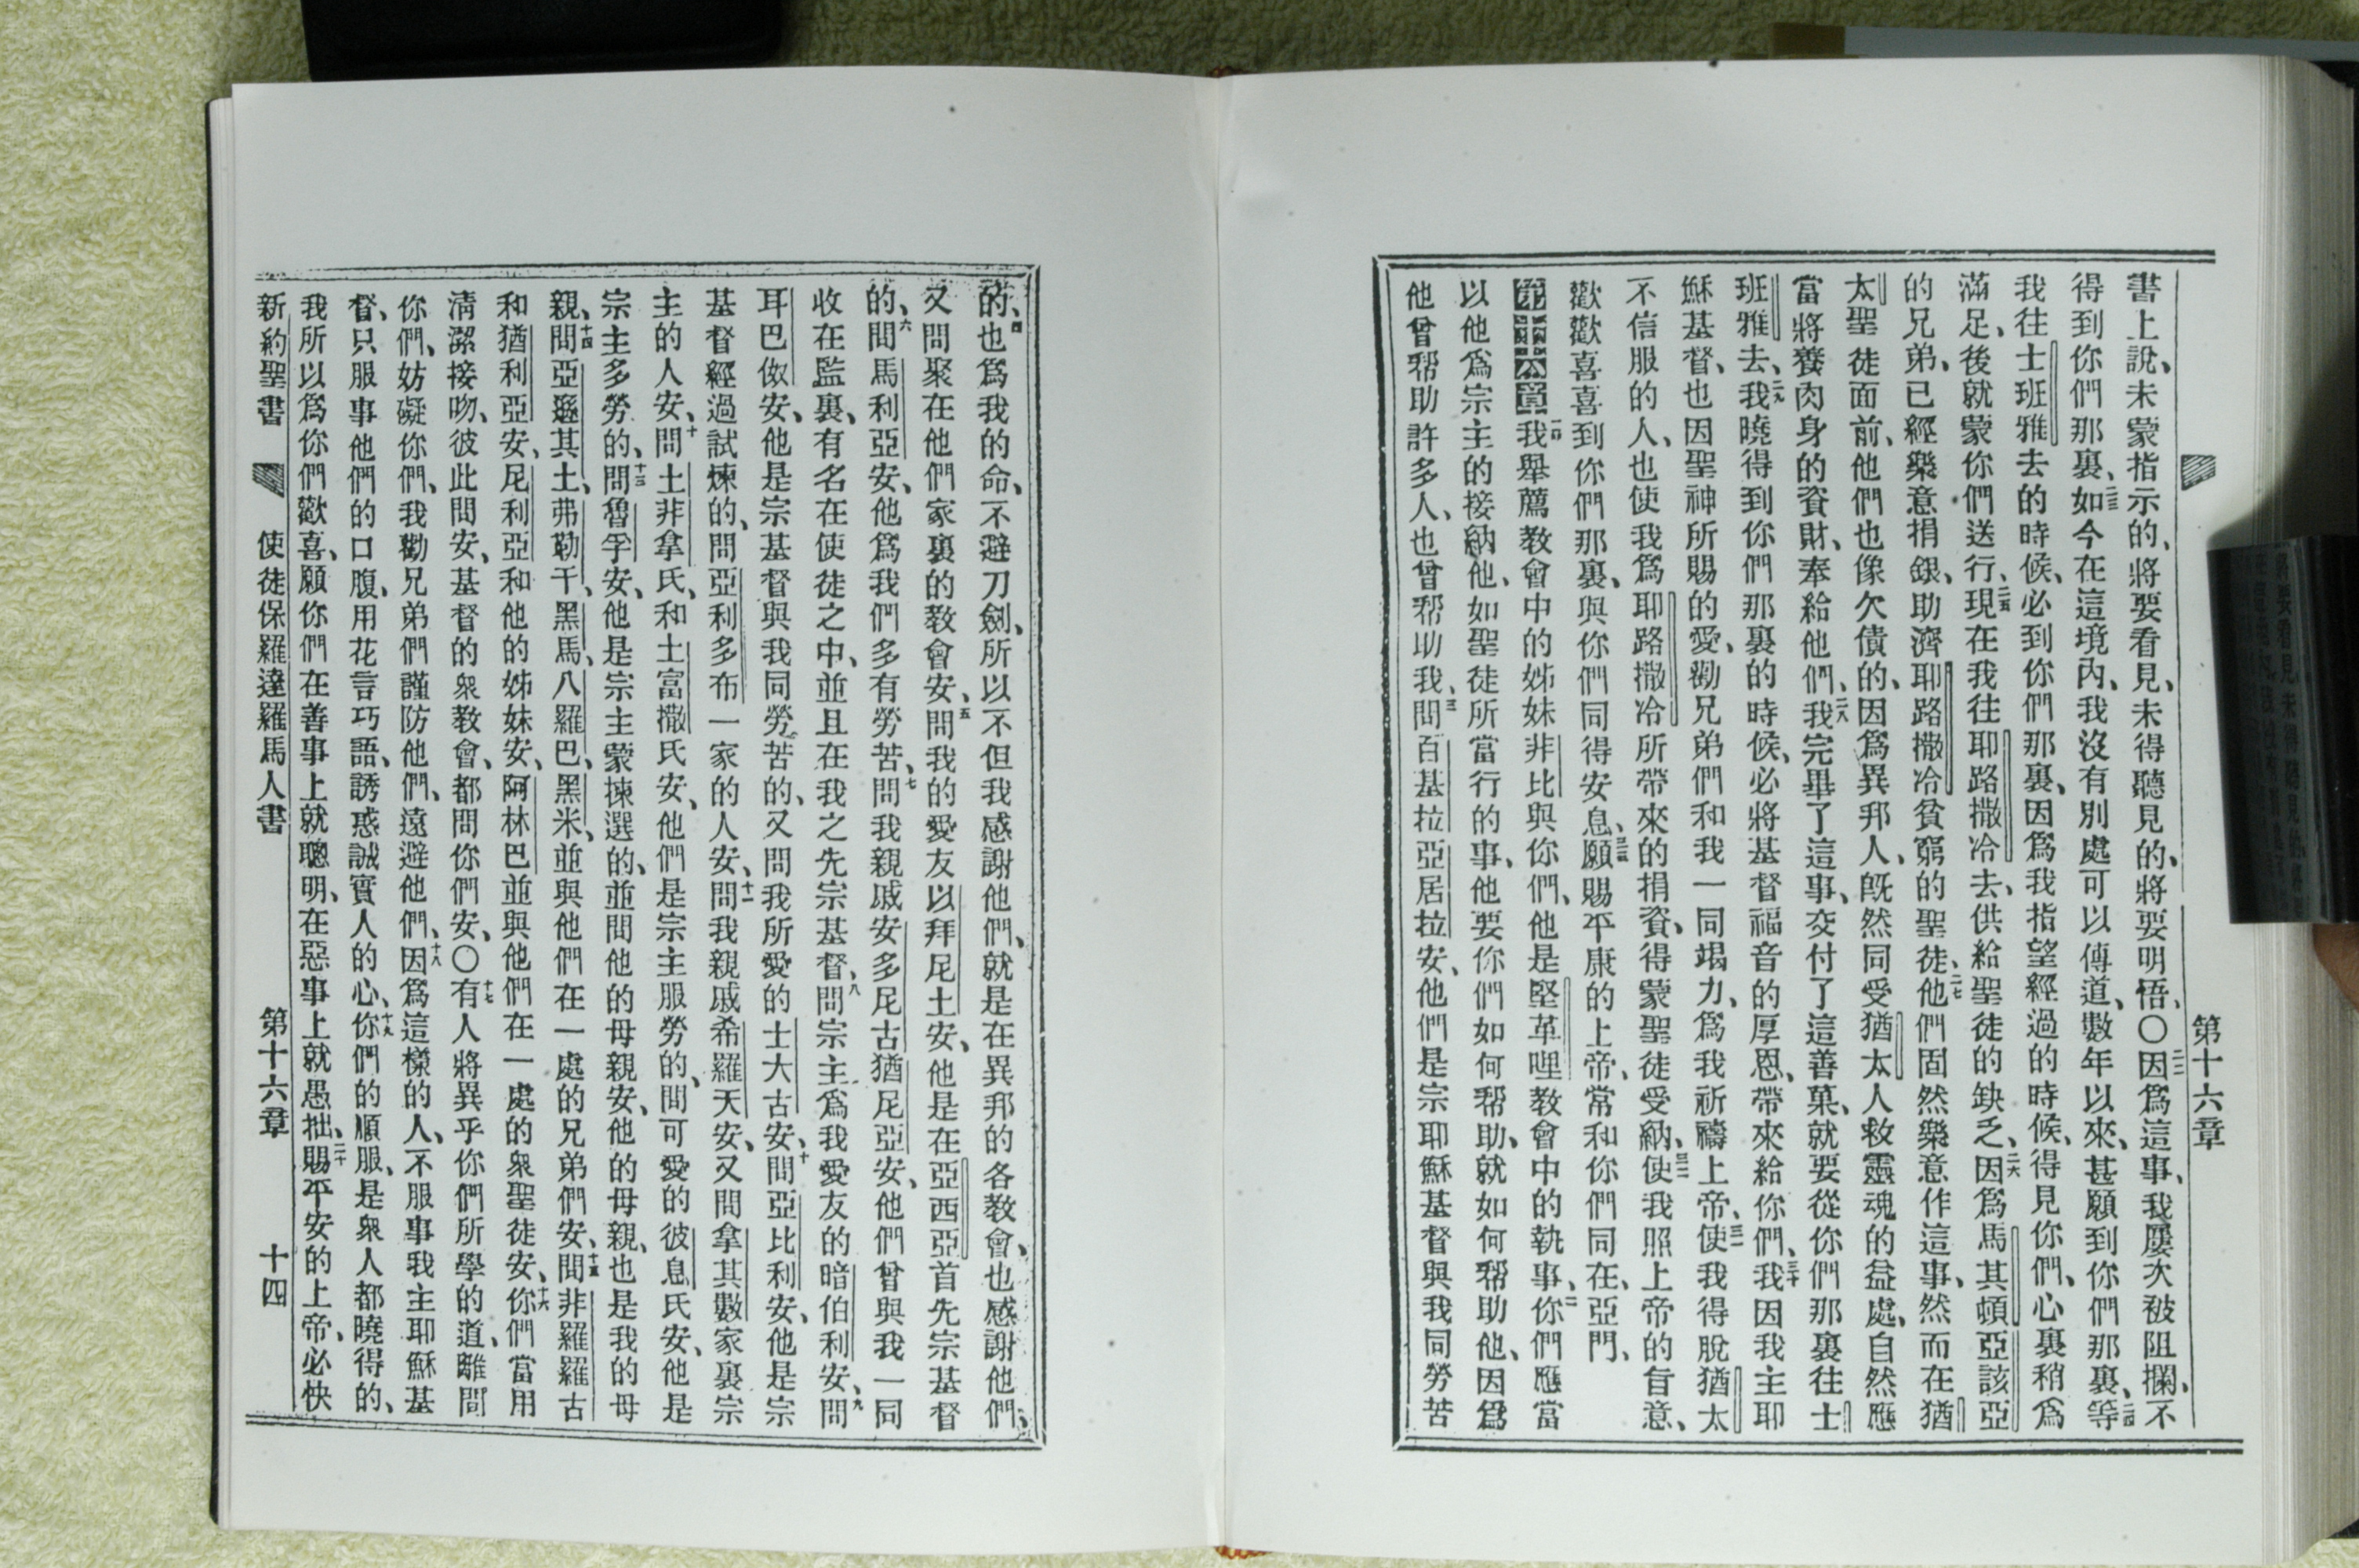 第十六章
書上說、未蒙指示的、將要看見、未得聽見的、將要明悟、〇二二因爲這事、我屢次被阻攔、不
得到你們那裏、二三如今在這境內、我沒有別處可以傳道、數年以來、甚願到你們那裏、二四等
我往士班雅去的時候、必到你們那裏、因爲我指望經過的時候、得見你們、心裏稍爲
滿足、後就蒙你們送行、二五現在我往耶路撒冷去、供給聖徒的缺乏、二六因爲馬其頓亞該亞
的兄弟、已經樂意捐銀、助濟耶路撒冷貧窮的聖徒、二七他們固然樂意作這事、然而在猶
太聖徒面前、他們也像欠債的、因爲異邦人、旣然同受猶太人救靈魂的益處、自然應
當將養肉身的資財、奉給他們、二八我完畢了這事、交付了這善菓、就要從你們那裏往士
班雅去、二九我曉得到你們那裏的時候、必將基督福音的厚恩、帶來給你們、三十我因我主耶
穌基督、也因聖神所賜的愛、勸兄弟們和我一同竭力、爲我祈禱上帝、三一使我得脫猶太
不信服的人、也使我爲耶路撒冷所帶來的捐資、得蒙聖徒受納、三二使我照上帝的旨意、
歡歡喜喜到你們那裏、與你們同得安息、三三願賜平康的上帝、常和你們同在、亞門、
第十六章一我舉薦教會中的姊妹非比與你們、他是堅革哩教會中的執事、二你們應當
以他爲宗主的接納他、如聖徒所當行的事、他要你們如何帮助、就如何帮助他、因爲
他曾帮助許多人、也曾帮助我、三問百基拉亞居拉安、他們是宗耶穌基督與我同勞苦
的、四也爲我的命、不避刀劍、所以不但我感謝他們、就是在異邦的各教會、也感謝他們、
又問聚在他們家裏的教會安、五問我的愛友以拜尼土安、他是在亞西亞首先宗基督
的、六問馬利亞安、他爲我們多有勞苦、七問我親戚安多尼古猶尼亞安、他們曾與我一同
收在監裏、有名在使徒之中、並且在我之先宗基督、八問宗主爲我愛友的暗伯利安、九問
耳巴伮安、他是宗基督與我同勞苦的、又問我所愛的士大古安、十問亞比利安、他是宗
基督經過試煉的、問亞利多布一家的人安、十一問我親戚希羅天安、又問拿其數家裏宗
主的人安、十二問土非拿氏、和土富撒氏安、他們是宗主服勞的、問可愛的彼息氏安、他是
宗主多勞的、十三問魯孚安、他是宗主蒙揀選的、並問他的母親安、他的母親、也是我的母
親、十四問亞遜其土、弗勒干、黑馬、八羅巴、黑米、並與他們在一處的兄弟們安、十五問非羅羅古
和猶利亞安、尼利亞和他的姊妹安、阿林巴並與他們在一處的衆聖徒安、十六你們當用
清潔接吻、彼此問安、基督的衆教會、都問你們安、〇十七有人將異乎你們所學的道、離間
你們、妨礙你們、我勸兄弟們謹防他們、遠避他們、十八因爲這樣的人、不服事我主耶穌基
督、只服事他們的口腹、用花言巧語、誘惑誠實人的心、十九你們的順服、是衆人都曉得的、
我所以爲你們歡喜、願你們在善事上就聰明、在惡事上就愚拙、二十賜平安的上帝、必快
新約聖書 使徒保羅達羅馬人書 第十六章 十四